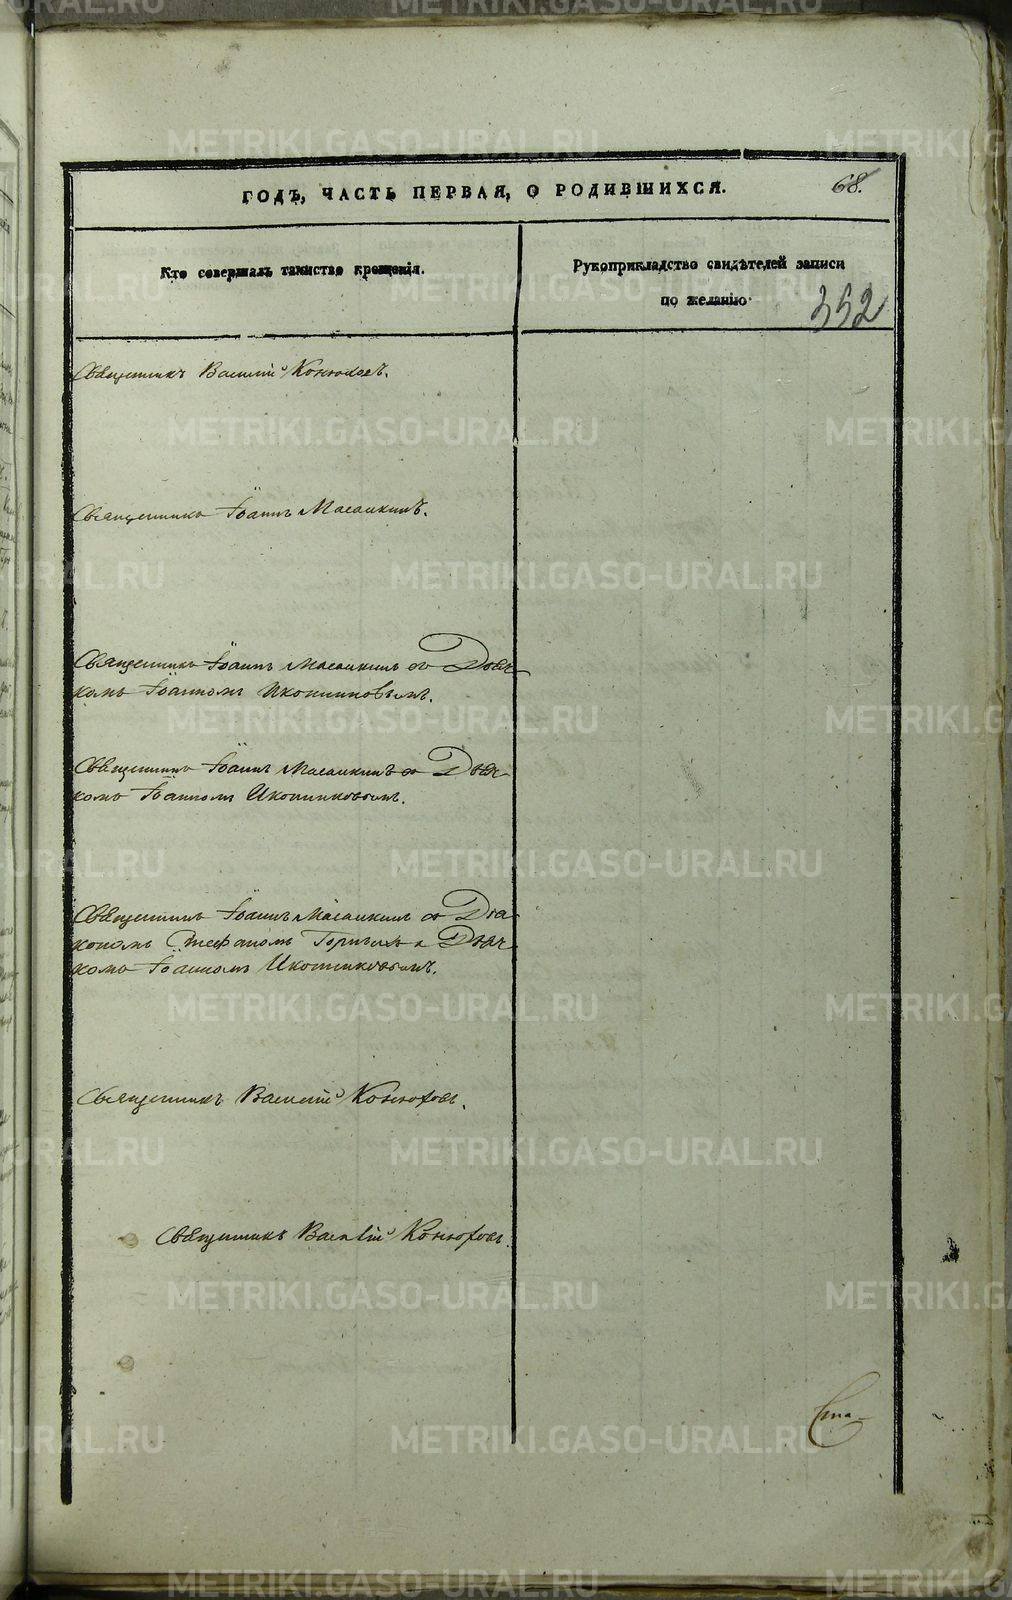 ГОДЪ, ЧАСТЬ ПЕРВАЯ, О РОДИВШИХСЯ.
68.
Кто совершалъ таинство крещенія.
Рукоприкладство свидѣтелей записи
по желанію.
352
Священникъ Василій Конюховъ.
Священникъ Іоаннъ Масалкинъ.
Священникъ Іоаннъ Масалкинъ съ Дьяч-
комъ Іоанномъ Иконниковымъ.
Священникъ Іоаннъ Масалкинъ съ Дьяч-
комъ Іоанномъ Иконниковымъ.
Священникъ Іоаннъ Масалкинъ съ Діа-
кономъ Стефаномъ и Дьяч-
комъ Іоанномъ Иконниковымъ.
Священникъ Василій Конюховъ.
Священникъ Василій Конюховъ.
METRIKI.GASO-URAL.RU